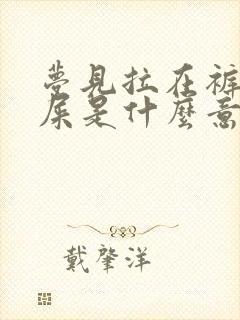 夢見拉在褲
屎是什麼意
戴肇洋